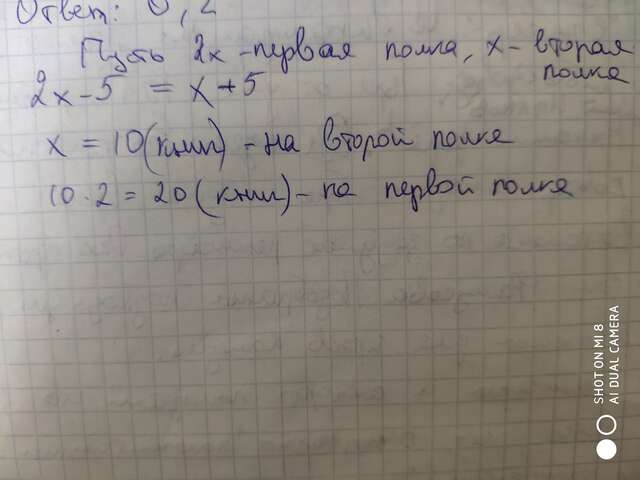 Ответ: 0,2
Пусть 2х - первая полка, х - вторая
полка
2х - 5 = х + 5
х = 10 (книг) - на второй полке
10 · 2 = 20 (книг) - на первой полке
SHOT ON MI 8
AI DUAL CAMERA